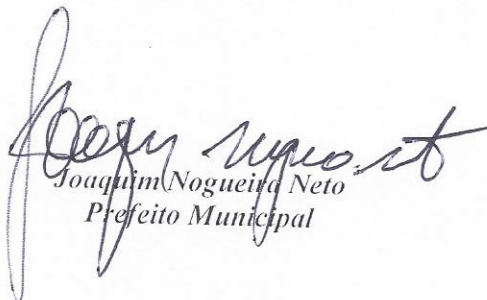 Joaquim Nogueira Neto
Prefeito Municipal